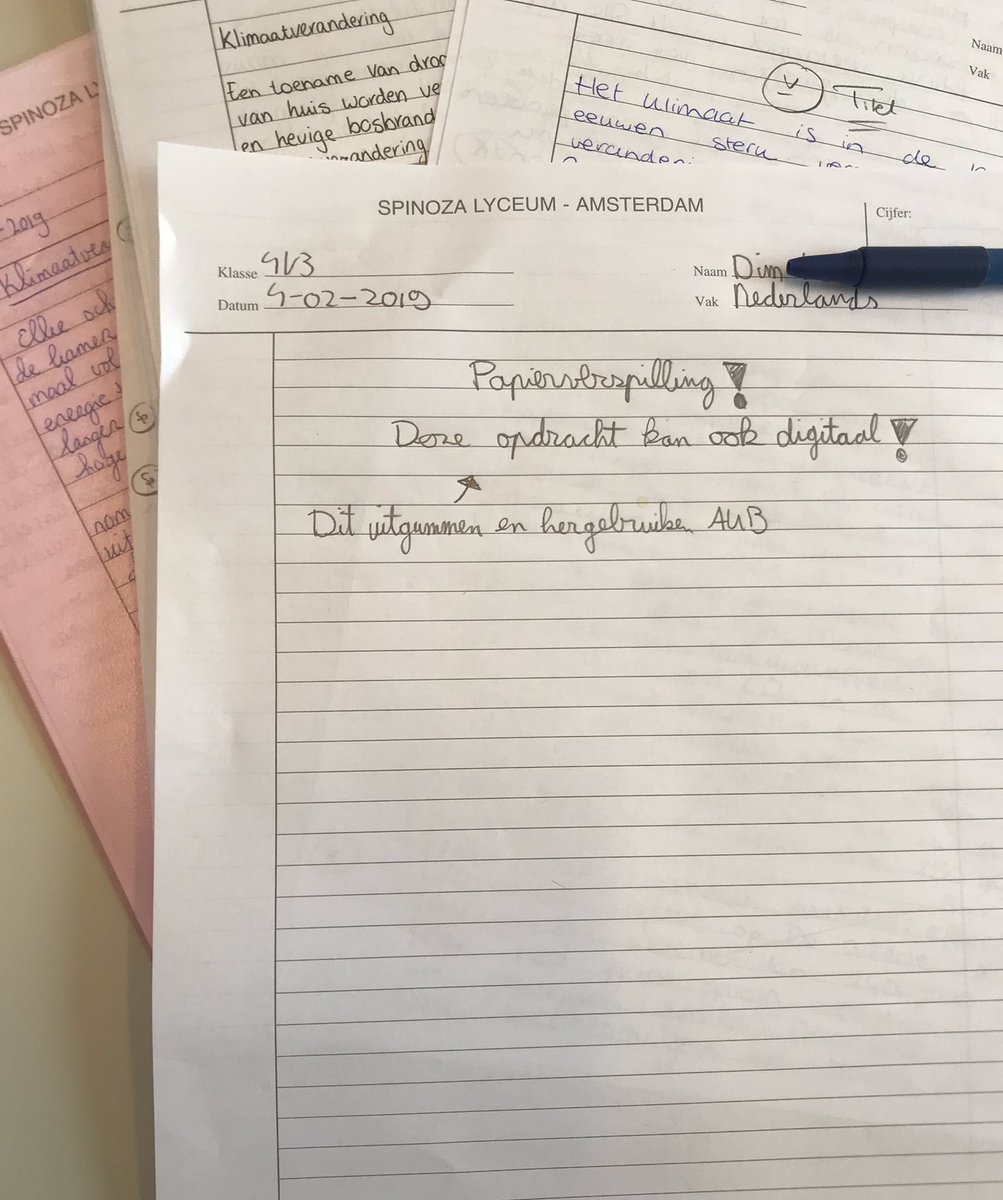 SPINOZA LYCEUM - AMSTERDAM
Cijfer:
Klasse 4V3
Naam Dim
Datum 4-02-2019
Vak Nederlands
Papierverspilling!
Deze opdracht kan ook digitaal!
Dit uitgummen en hergebruiken AUB
Klimaatverandering
Een toename van
van huis worden
en hevige bosbrand
Naam
Vak
V Titel
Het klimaat is in de
eeuwen sterk
SPINOZA
-2019
Ellie
de kamer
maal vol
energie
langer
hoge
Sp
Sp